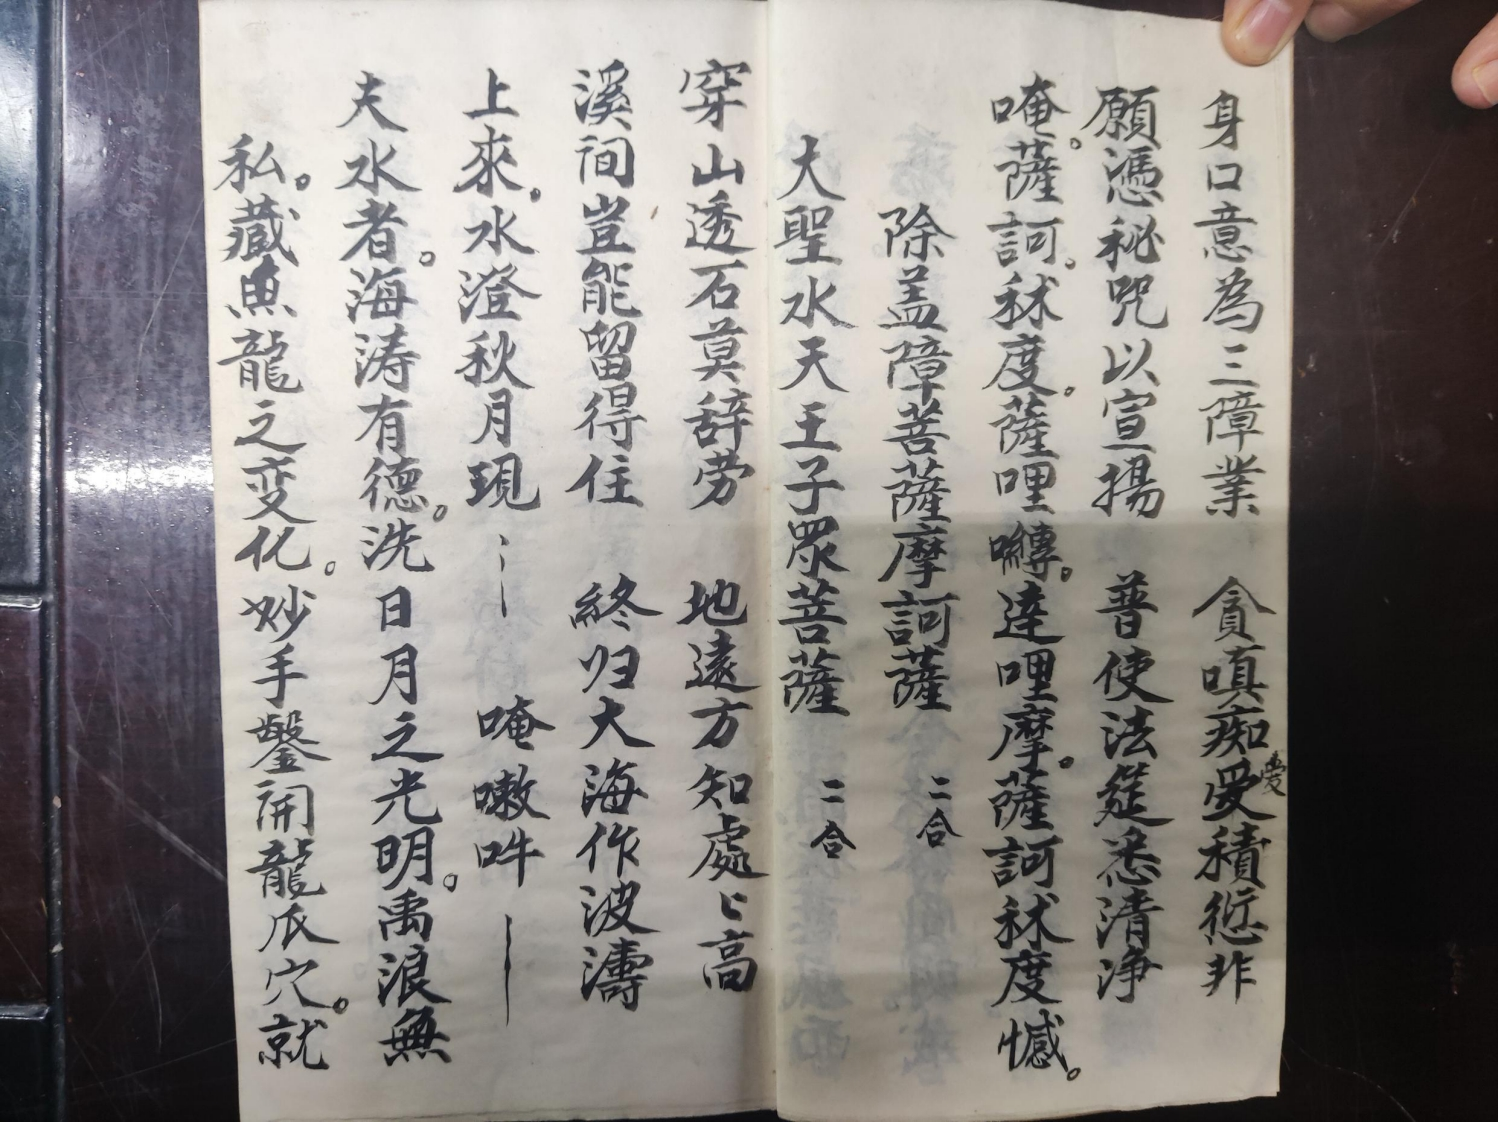 身口意為三障業 貪嗔痴愛積愆非
願憑秘咒以宣揚 普使法筵悉清浄
唵。薩訶。秫度。薩哩嚩。達哩摩。薩訶秫度憾。
除盖障菩薩摩訶薩 二合
大聖水天王子眾菩薩 二合
穿山透石莫辞劳 地遠方知處〻高
溪间豈能留得住 終归大海作波濤
上來。水澄秋月現 唵嗷吽
夫水者。海涛有德。洗日月之光明。禹浪無
私。藏魚龍之变化。妙手鑿開龍爪穴。就